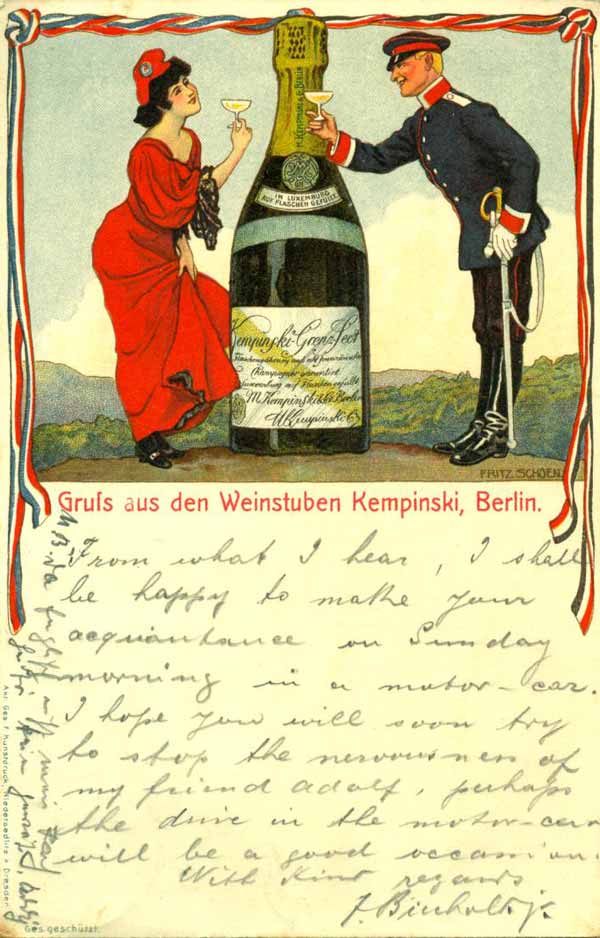 M. KEMPINSKI & Co BERLIN
IN LUXEMBURG
AUF FLASCHEN GEFÜLLT
Kempinski-Grenz-Sect
Champagner garantiert
Luxemburg auf Flaschen gefüllt
M. Kempinski & Co Berlin
M Kempinski & Co
FRITZ SCHOEN
Gruſs aus den Weinstuben Kempinski, Berlin.
From what I hear, I shall
be happy to make your
acquantance on Sunday
morning in a motor-car.
I hope you will soon try
to stop the nervousness of
my friend Adolf, perhaps
the drive in the motor-car
will be a good occasion.
With kind regards
Akt. Ges. f. Kunstdruck, Niedersedlitz - Dresden
Ges. geschützt.